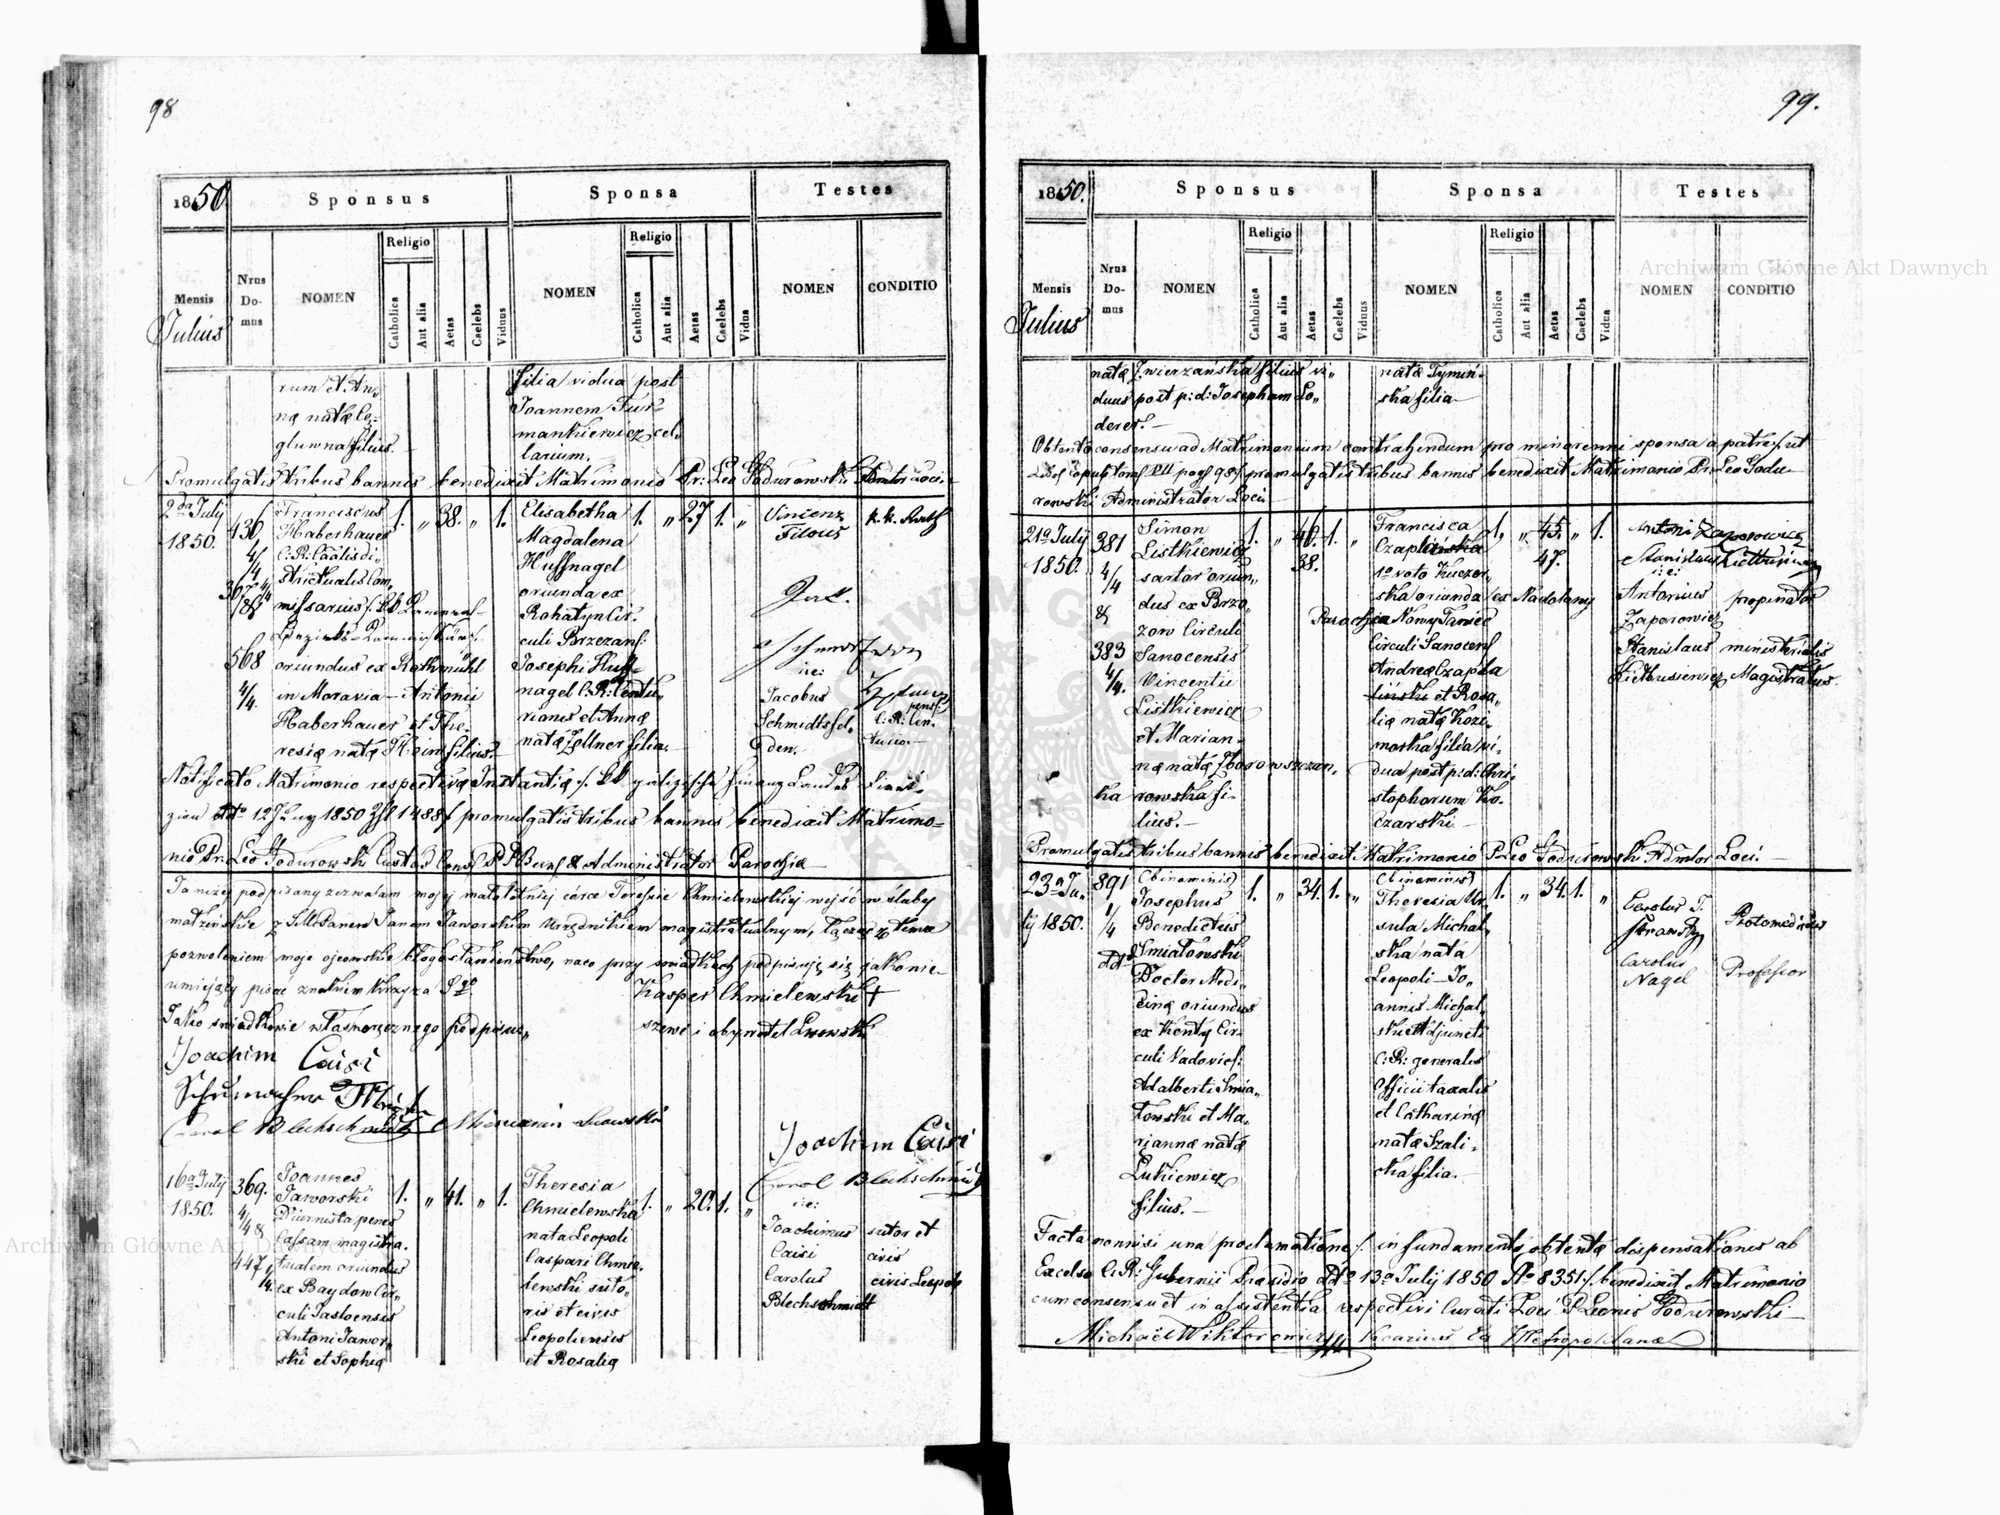 98
1850
Sponsus
Sponsa
Testes
Mensis
Julius
Nrus
Do-
mus
NOMEN
Religio
Catholica
Aut alia
Aetas
Caelebs
Viduus
NOMEN
Religio
Catholica
Aut alia
Aetas
Caelebs
Vidua
NOMEN
CONDITIO
rum et An„
næ natæ Co„
gluwna filius.
filia vidua post
Joannem Fur„
mankiewicz cel„
larium.
Promulgatis tribus bannis benedixit Matrimonio Pr: Leo Godurowski
2da July
1850.
430
4/4
568
4/4.
Franciscus
Haberhauer
C: R: Caälis di„
strictualis Com„
missarius
oriundus ex Rothmühl
in Moravia – Antonii
Haberhauer et The„
resiæ natæ Hein filius.
1. „ 38. „ 1.
Elisabetha
Magdalena
Huffnagel
oriunda ex
Rohatyn Cir„
culi Brzezans:
Josephi Huff„
nagel C: R: Centu„
rionis et Annæ
natæ Zellner filia.
1. „ 27 1. „
Vincenz
Titous
ie:
Jacobus
Schmidtsfel„
den.
pens:
C: R: Cen„
turio.
Notificato Matrimonio respectivæ Instantiæ
1850 promulgatis tribus bannis benedixit Matrimo„
nio Pr: Leo Godurowski Custos Administrator Parochiæ
Ja niżej podpisany zezwalam mojej małoletniej córce Teresie Chmielewskiej wejść w śluby
małżeńskie z Panem Janem Jaworskim Urzędnikiem magistratualnym, łącząc z tem
pozwoleniem moje ojcowskie błogosławieństwo, naco przy świadkach podpisuję się jako nie„
umiejący pisać znakiem krzyża Sgo
Kasper Chmielewski +
Jako świadkowie własnoręcznego podpisu„
szewc i obywatel Lwowski
Joachim Caisi
Carol Blechschmidt
Joachim Caisi
Carol Blechschmidt
16a July
1850.
369.
4/4
447
1/4.
Joannes
Jaworski
Diurnista penes
Cassam magistra„
tualem oriundus
ex Baydow Cir„
culi Jasloensis
Antoni Jawor„
ski et Sophiæ
1. „ 41. „ 1.
Theresia
Chmielewska
nata Leopoli
Caspari Chmie„
lewski suto„
ris et civis
Leopoliensis
et Rosaliæ
1. „ 20. 1. „
ie:
Joachimus
Caisi
Carolus
Blechschmidt
sutor et
civis
civis Leopol:
99.
1850.
Sponsus
Sponsa
Testes
Mensis
Julius
Nrus
Do-
mus
NOMEN
Religio
Catholica
Aut alia
Aetas
Caelebs
Viduus
NOMEN
Religio
Catholica
Aut alia
Aetas
Caelebs
Vidua
NOMEN
CONDITIO
natæ Zwierzańska filius vi„
duus post p: d: Josepham Lo„
derer.
natæ Tymiń„
ska filia
Obtento consensu ad Matrimonium contrahendum pro minorenni sponsa a patre ut
pag: 98 promulgatis tribus bannis benedixit Matrimonio Pr Leo Godu„
rowski Administrator Loci
21a July
1850.
381
4/4
&
383
4/4.
Simon
Listkiewicz
sartor oriun„
dus ex Brzo„
zow Circuli
Sanocensis
Vincentii
Listkiewicz
et Marian„
næ natæ Zborowszczan„
ka rowska fi„
lius.
1. „ 46. 1. „
38.
Francisca
Czaplińska
1o voto Kuczar„
ska oriunda ex Nadolany
Parochia Nowy Taniec
Circuli Sanocens:
Andreæ Czapla
liński et Rosa„
liæ natæ Kozi„
morska filia vi„
dua post p: d: Chri„
stophorum Ko„
czarski
1. „ 45. „ 1.
47.
Antoni Zaporowicz
Stanisław Kietbusiewicz
i: e:
Antonius
Zaporowicz
Stanislaus
Kietbusiewicz
propinator
ministerialis
Magistratus.
Promulgatis tribus bannis benedixit Matrimonio P Leo Godurowski Admtor Loci.
23a Ju„
lij 1850.
891
1/4
(binominis)
Josephus
Benedictus
Smiałowski
Doctor Medi„
cinæ oriundus
ex Kenty Cir„
culi Vadovics:
Adalberti Smia„
łowski et Ma„
riannæ natæ
Lukiewicz
filius.
1. „ 34. 1. „
(binominis)
Theresia Ur„
sula Michal„
ska nata
Leopoli – Jo„
annis Michal„
ski Adjuncti
C: R: generalis
Officii taxalis
et Catharinæ
natæ Szali„
ska filia.
1. „ 34. 1. „
Carolus
Nagel
Protomedicus
Professor
Facta nonnisi una proclamatione in fundamento obtentæ dispensationis ab
Excelso C: R: Gubernii Præsidio ddo 13a July 1850 No 8351 benedixit Matrimonio
cum consensu et in assistentia respectivi Curati Loci P Leonis Godurowski
Michaël Wiktorowicz Vicarius Ecc Metropolitanæ
Archiwum Główne Akt Dawnych
Archiwum Główne Akt Dawnych